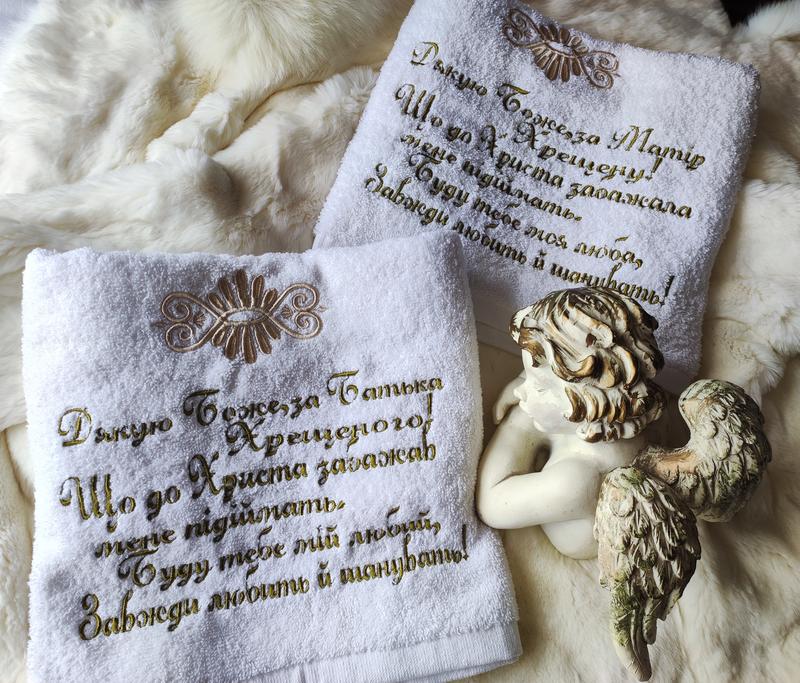 Дякую Боже,за Батька
Хрещеного!
Що до Христа забажав
мене підіймать.
Буду тебе мій любий,
Завжди любить й шанувать!
Дякую Боже,за Матір
Хрещену!
Що до Христа забажала
мене підіймать.
Буду тебе моя люба,
Завжди любить й шанувать!